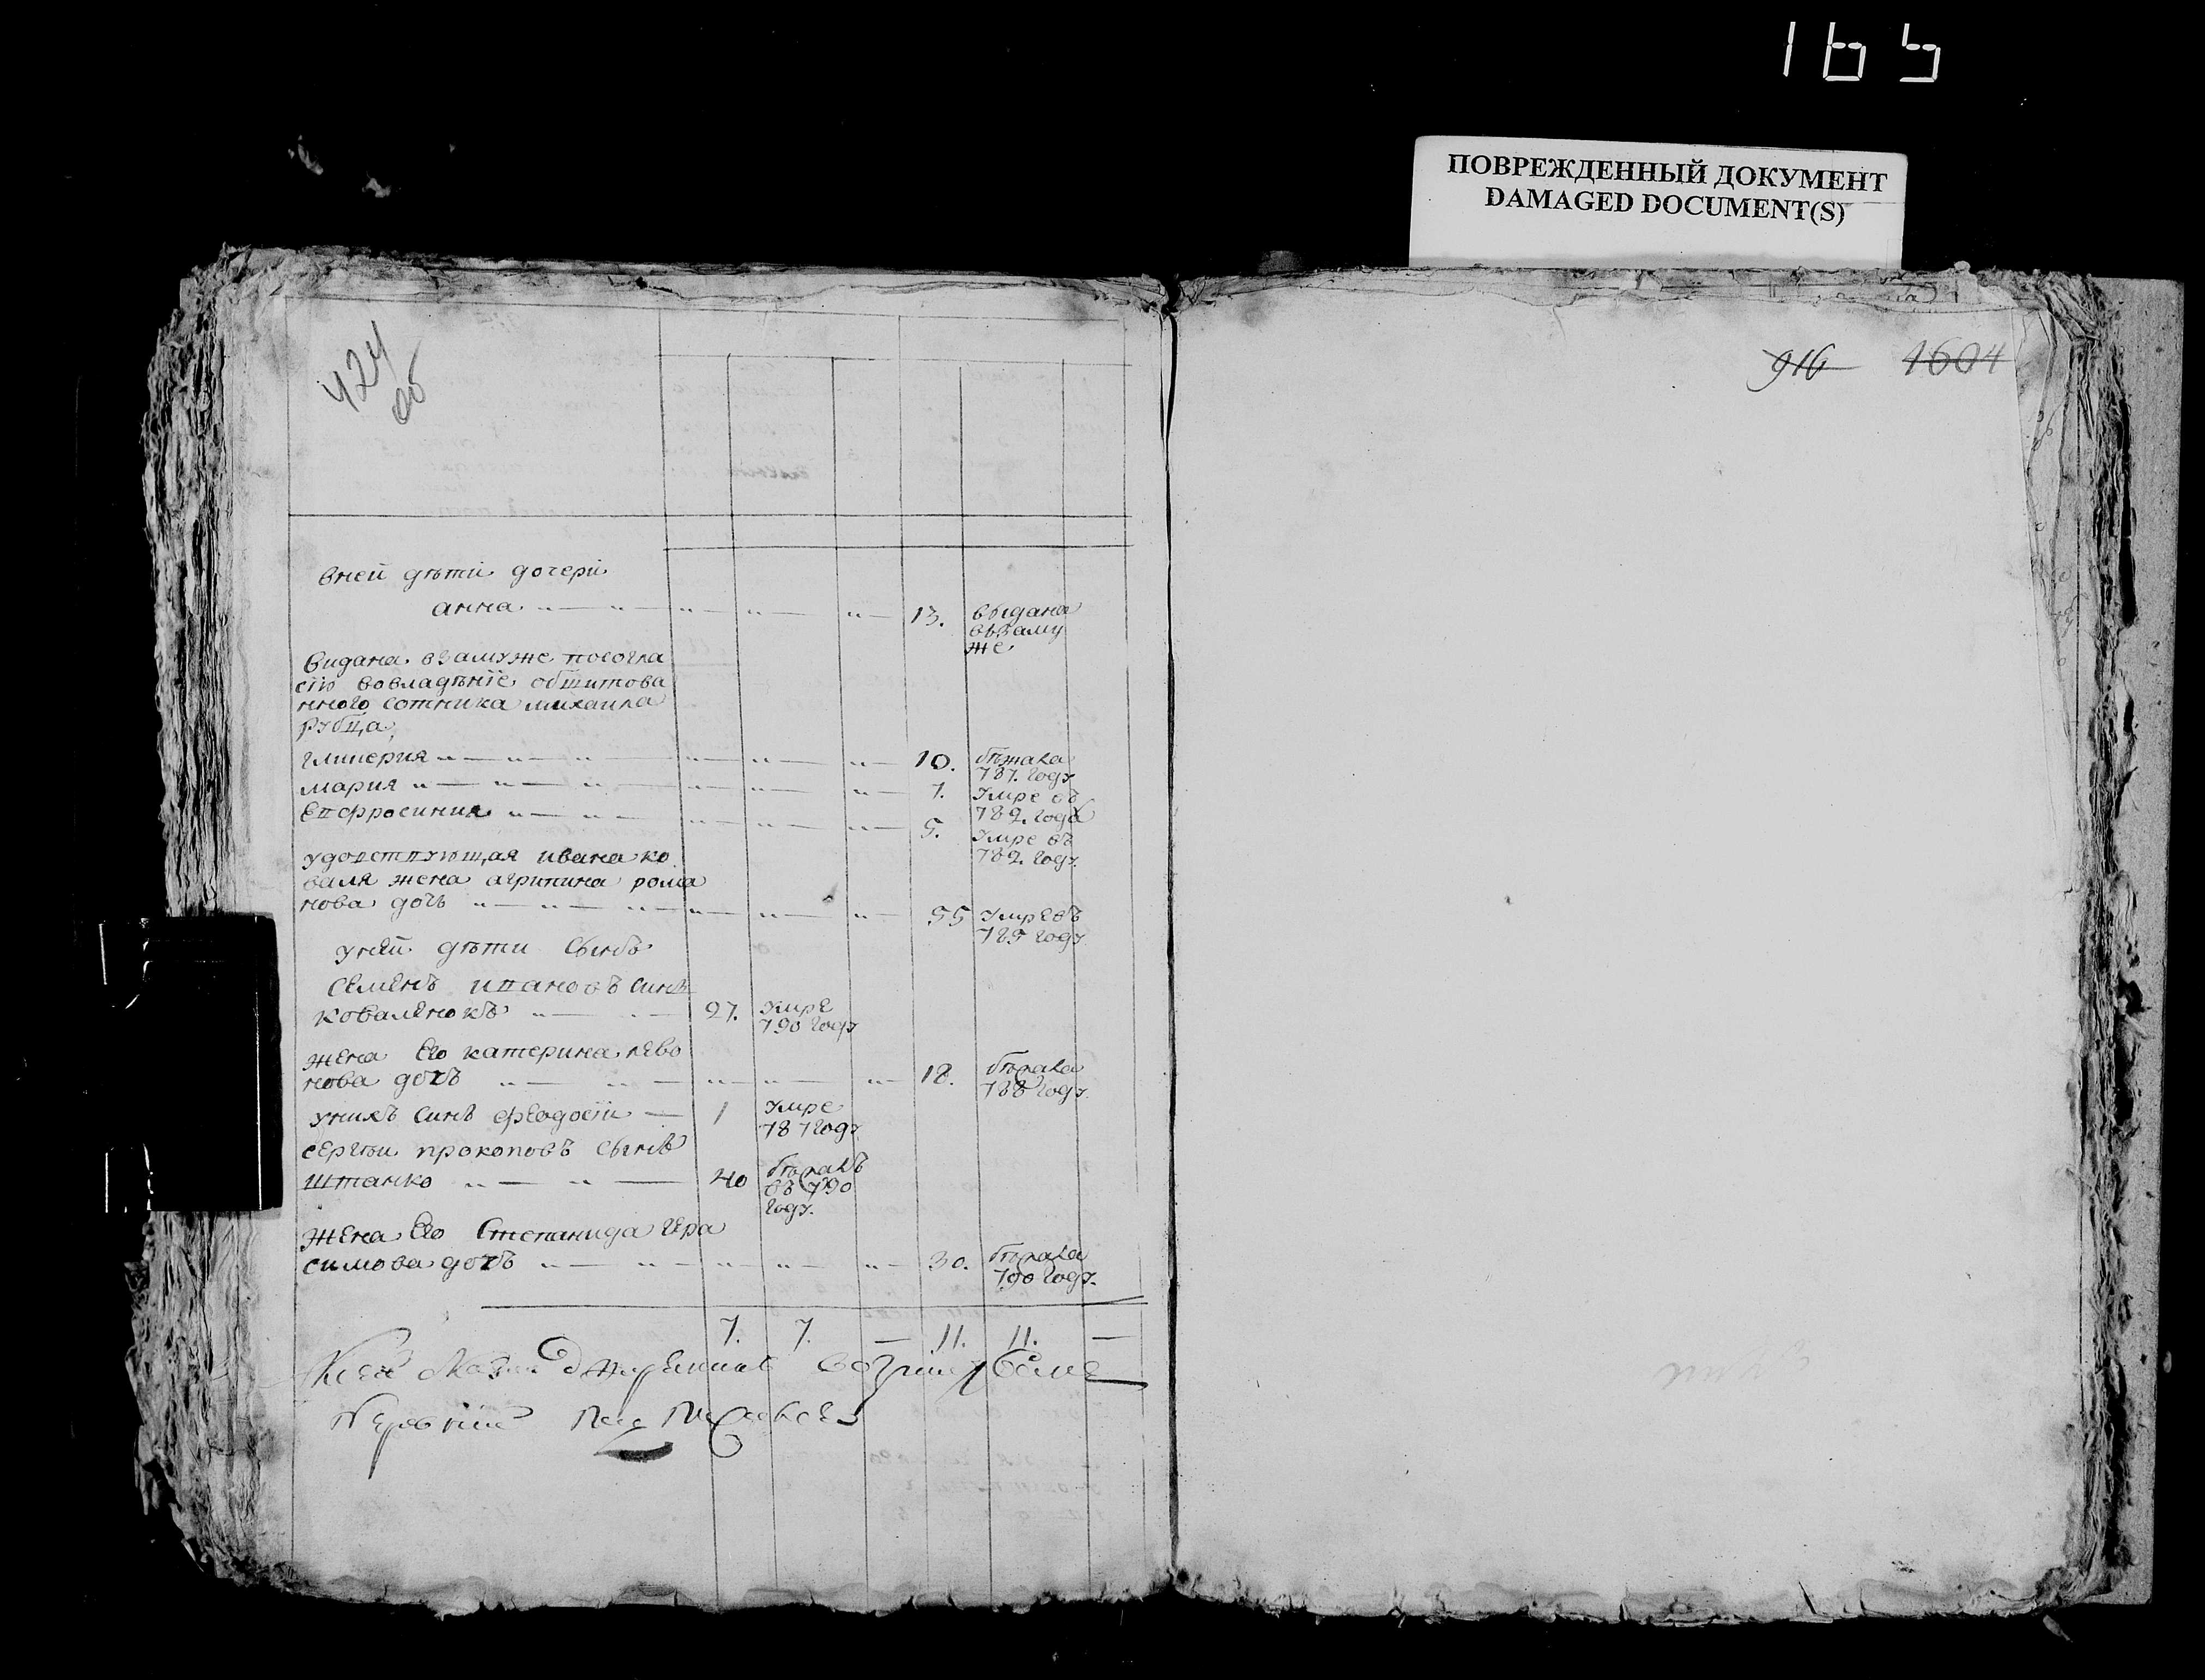 165
ПОВРЕЖДЕННЫЙ ДОКУМЕНТ
DAMAGED DOCUMENT(S)
424
об
916 1604
вней дѣти дочери
анна 13. выдана
взаму
же
видана взамуже посогла
сію вовладѣніе обшитова
нного сотника михаила
рубца
гликерия 10. бѣжала
787. году
мария 7. умре въ
782. года
Епфросиния 5. умре въ
782. году
удовствующая ивана ко
валя жена агрипина рома
нова дочь 55 умре въ
789 году
уней дѣти сынъ
семенъ ивановъ синъ
коваленокъ 27. умре
790 году
жена Его катерина лево
нова дочь 18. бѣжала
788 году
унихъ синъ феодосїи 1 умре
787 году
сергѣи прокоповъ сынъ
штанко 40 бѣжалъ
въ 790
году.
жена Его Степанида гера
симова дочь 30. бѣжала
790 году.
7. 7. — 11. 11. —